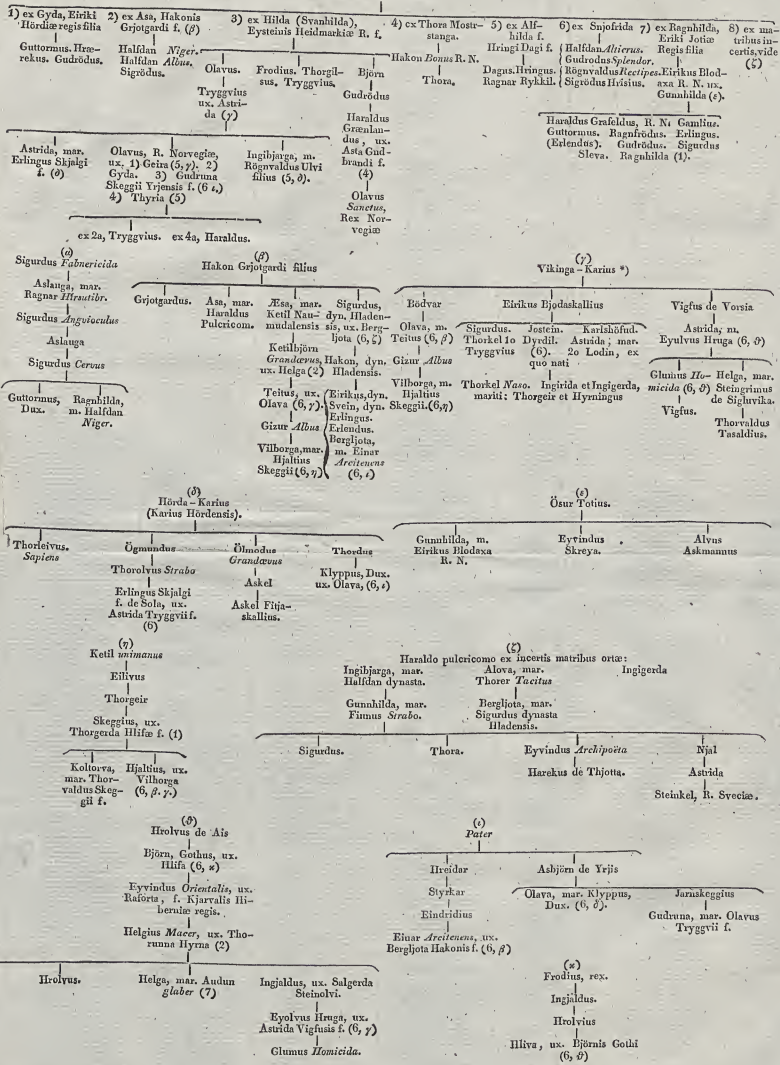 1) ex Gyda, Eiriki
Hördiæ regis filia
Guttormus. Hræ-
rekus. Gudrödus.
2) ex Asa, Hakonis
Grjotgardi f. (β)
Halfdan Niger.
Halfdan Albus.
Sigrödus.
3) ex Hilda (Svanhilda),
Eysteinis Heidmarkiæ R. f.
Olavus.
Tryggvius
ux. Astri-
da (γ)
Frodius. Thorgil-
sus. Tryggvius.
Björn
Gudrödus
Haraldus
Grænlan-
dus, ux.
Asta Gud-
brandi f.
(4)
Olavus
Sanctus,
Rex Nor-
vegiæ
4) ex Thora Mostr-
stanga.
Hakon Bonus R. N.
Thora.
5) ex Alf-
hilda f.
Hringi Dagi f.
Dagus. Hringus.
Ragnar Rykkil.
6) ex Snjofrida
Halfdan Altierus.
Gudrodus Splendor.
Rögnvaldus Rectipes.
Sigrödus Hrisius.
7) ex Ragnhilda,
Eriki Jotiæ
Regis filia
Eirikus Blod-
axa R. N. ux.
Gunnhilda (ε).
8) ex ma-
tribus in-
certis, vide
(ζ)
Haraldus Grafeldus, R. N. Gamlius.
Guttormus. Ragnfrödus. Erlingus.
(Erlendus). Gudrödus. Sigurdus
Sleva. Ragnhilda (1).
Astrida, mar.
Erlingus Skjalgi
f. (δ)
Olavus, R. Norvegiæ,
ux. 1) Geira (5, γ). 2)
Gyda. 3) Gudruna
Skeggii Yrjensis f. (6 ι,)
4) Thyria (5)
Ingibjarga, m.
Rögnvaldus Ulvi
filius (5, δ).
ex 2a, Tryggvius. ex 4a, Haraldus.
(α)
Sigurdus Fabnericida
Aslauga, mar.
Ragnar Hirsutibr.
Sigurdus Angvioculus
Aslauga
Sigurdus Cervus
Guttormus,
Dux.
Ragnhilda,
m. Halfdan
Niger.
(β)
Hakon Grjotgardi filius
Grjotgardus.
Asa, mar.
Haraldus
Pulcricom.
Æsa, mar.
Ketil Nau-
mudalensis
Ketilbjörn
Grandævus,
ux. Helga (2)
Teitus, ux.
Olava (6, γ).
Gizur Albus
Vilborga, mar.
Hjaltius
Skeggii (6, η)
Sigurdus,
dyn. Hladen-
sis, ux. Berg-
ljota (6, ζ)
Hakon, dyn.
Hladensis.
Eirikus, dyn.
Svein, dyn.
Erlingus.
Erlendus.
Bergljota,
m. Einar
Arcitenens
(6, ι)
(γ)
Vikinga-Karius *)
Bödvar
Olava, m.
Teitus (6, β)
Gizur Albus
Vilborga, m.
Hjaltius
Skeggii. (6, η)
Eirikus Bjodaskallius
Sigurdus. Jostein. Karlshöfud.
Thorkel Dyrdil. Astrida; mar. 1o
Tryggvius (6). 2o Lodin, ex
quo nati
Thorkel Naso. Ingirida et Ingigerda,
mariti: Thorgeir et Hyrningus
Vigfus de Vorsia
Astrida, m.
Eyulvus Hruga (6, ϑ)
Glumus Ho-
micida (6, ϑ)
Vigfus.
Helga, mar.
Steingrimus
de Sigluvika.
Thorvaldus
Tasaldius.
(δ)
Hörda-Karius
(Karius Hördensis).
Thorleivus.
Sapiens
Ögmundus
Thorolvus Strabo
Erlingus Skjalgi
f. de Sola, ux.
Astrida Tryggvii f.
(6)
Ölmodus
Grandævus
Askel
Askel Fitja-
skallius.
Thordus
Klyppus, Dux.
ux. Olava, (6, ι)
(ε)
Ösur Totius.
Gunnhilda, m.
Eirikus Blodaxa
R. N.
Eyvindus
Skreya.
Alvus
Askmannus
(η)
Ketil unimanus
Eilivus
Thorgeir
Skeggius, ux.
Thorgerda Hlifæ f. (1)
Koltorva,
mar. Thor-
valdus Skeg-
gii f.
Hjaltius, ux.
Vilborga
(6, β. γ.)
(ζ)
Haraldo pulcricomo ex incertis matribus ortæ:
Ingibjarga, mar.
Halfdan dynasta.
Gunnhilda, mar.
Finnus Strabo.
Alova, mar.
Thorer Tacitus
Bergljota, mar.
Sigurdus dynasta
Hladensis.
Ingigerda
Sigurdus.
Thora.
Eyvindus Archipoëta
Harekus de Thjotta.
Njal
Astrida
Steinkel, R. Sveciæ.
(ϑ)
Hrolvus de Ais
Björn, Gothus, ux.
Hlifa (6, ϰ)
Eyvindus Orientalis, ux.
Raforta, f. Kjarvalis Hi-
berniæ regis.
Helgius Macer, ux. Tho-
runna Hyrna (2)
Hrolvus.
Helga, mar. Audun
glaber (7)
Ingjaldus, ux. Salgerda
Steinolvi.
Eyolvus Hruga, ux.
Astrida Vigfusis f. (6, γ)
Glumus Homicida.
(ι)
Pater
Hreidar
Styrkar
Eindridius
Einar Arcitenens, ux.
Bergljota Hakonis f. (6, β)
Asbjörn de Yrjis
Olava, mar. Klyppus,
Dux. (6, δ).
Jarnskeggius
Gudruna, mar. Olavus
Tryggvii f.
(ϰ)
Frodius, rex.
Ingjaldus.
Hrolvius
Hliva, ux. Björnis Gothi
(6, ϑ)